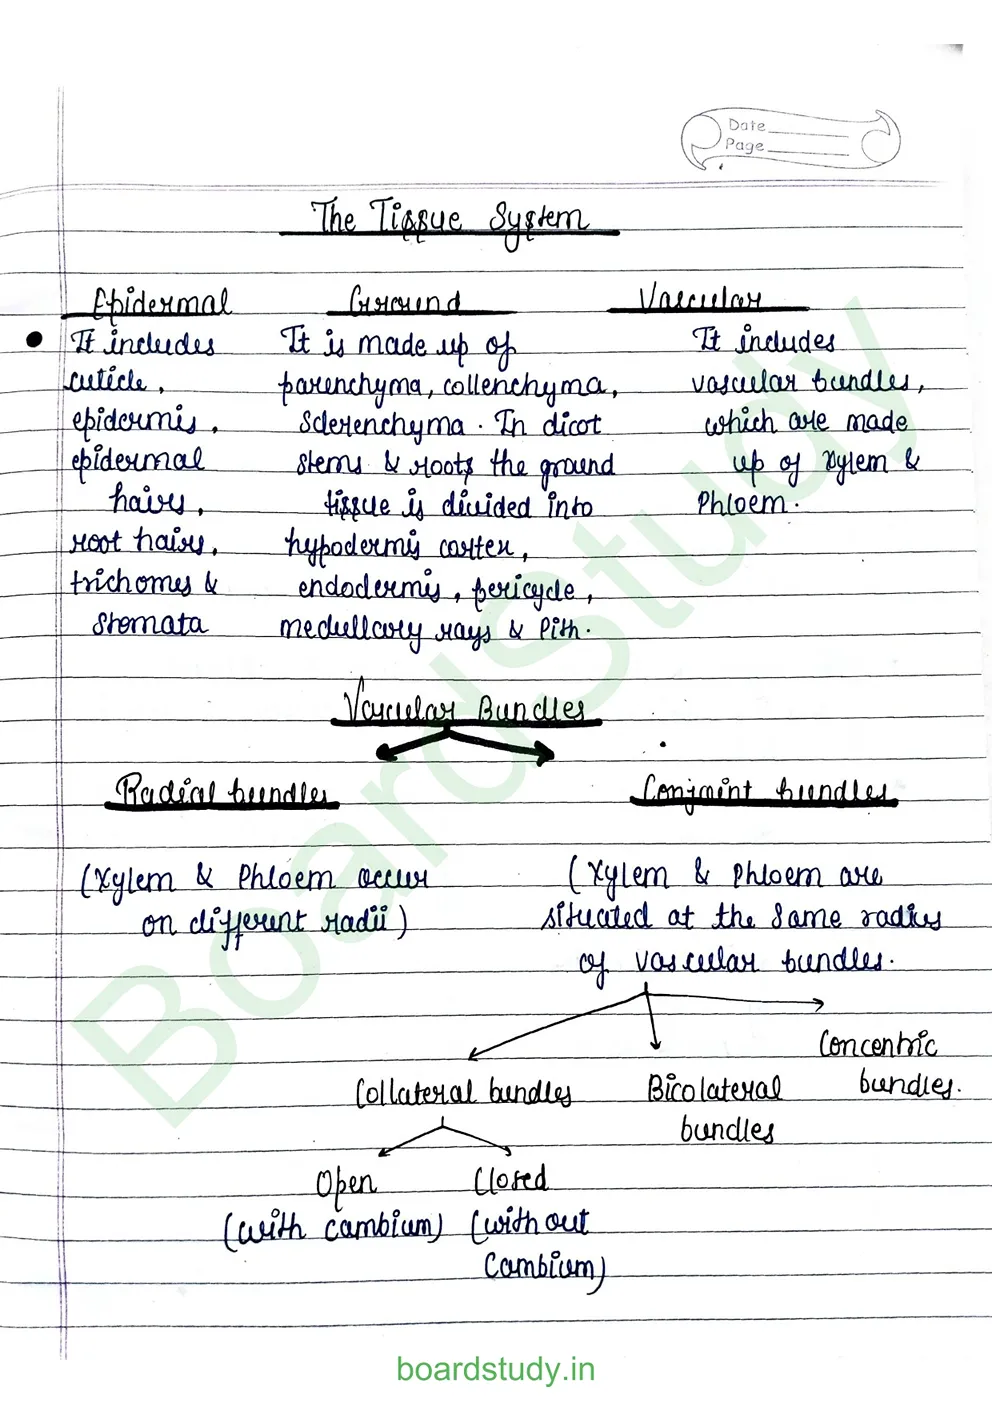 Date
Page
The Tissue System
Epidermal Ground Vascular
It includes It is made up of It includes
cuticle, parenchyma, collenchyma, vascular bundles,
epidermis, Sclerenchyma. In dicot which are made
epidermal stems & roots the ground up of Xylem &
hairs, tissue is divided into Phloem.
root hairs, hypodermis cortex,
trichomes & endodermis, pericycle,
Stomata medullary rays & Pith.
Vascular Bundles
Radial bundles Conjoint bundles
(Xylem & Phloem occur (Xylem & Phloem are
on different radii) situated at the same radius
of vascular bundles.
Concentric
Collateral bundles Bicolateral bundles.
bundles
Open Closed
(with cambium) (without
Cambium)
BoardStudy
boardstudy.in